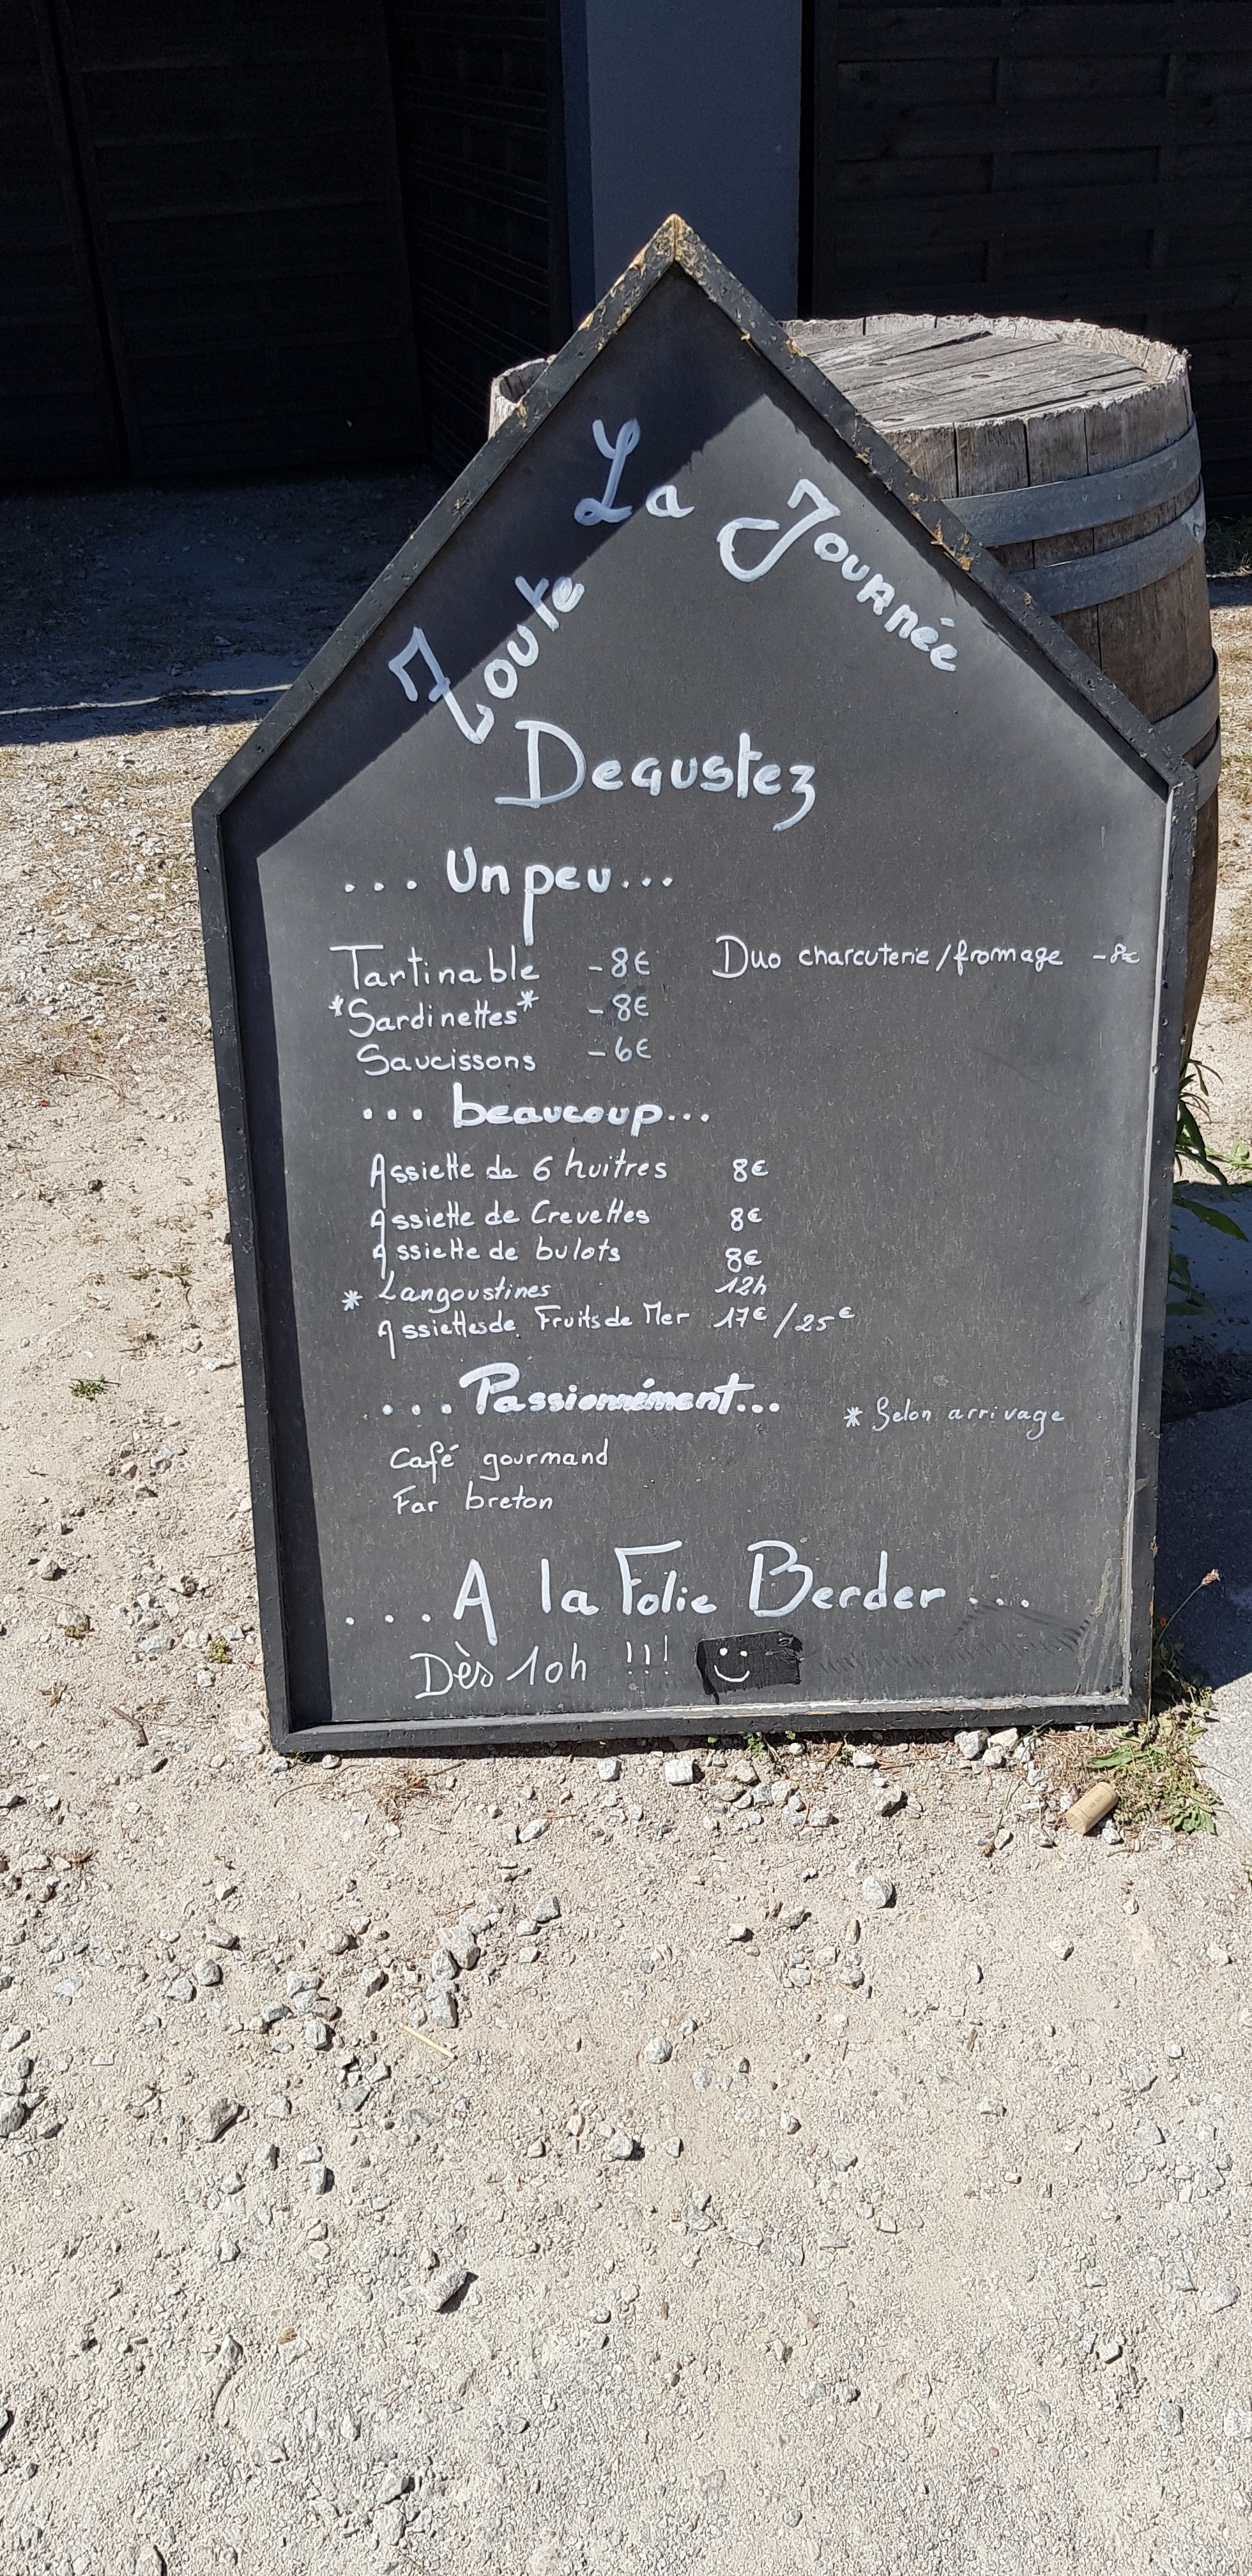 Toute La Journée
Degustez
... Un peu...
Tartinable -8€ Duo charcuterie/fromage -8€
*Sardinettes* -8€
Saucissons -6€
... beaucoup...
Assiette de 6 huitres 8€
Assiette de Crevettes 8€
Assiette de bulots 8€
* Langoustines 12h
Assiettes de Fruits de Mer 17€/25€
... Passionnément...
* Selon arrivage
Café gourmand
Far breton
.... A la Folie Berder ...
Dès 10h !!!